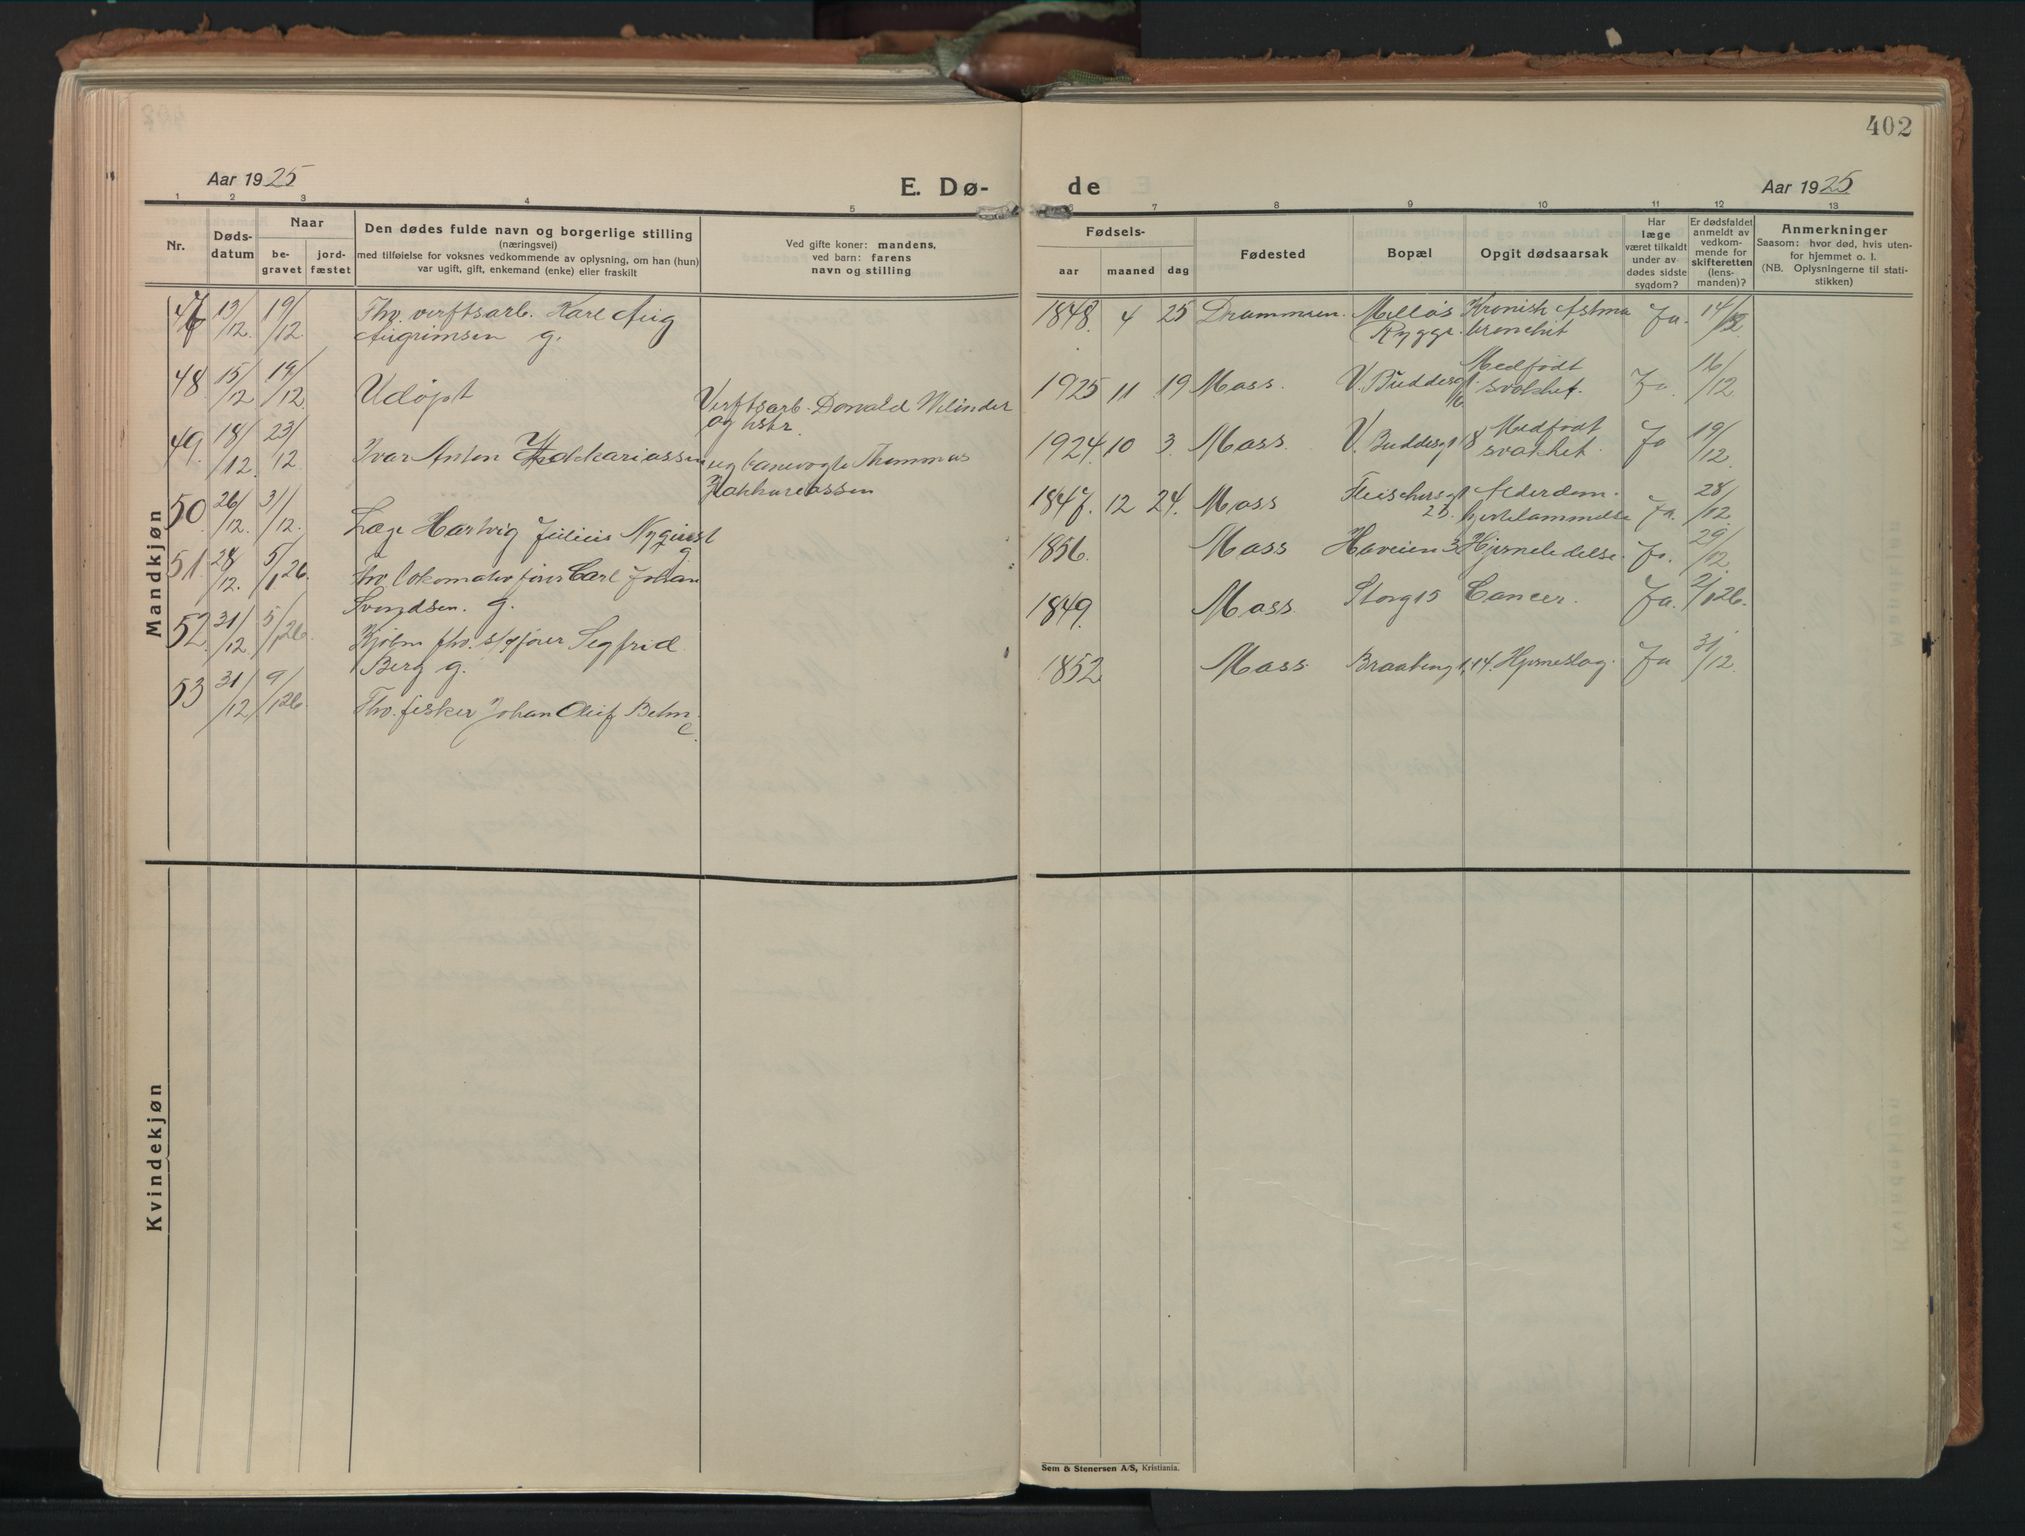 402
Aar 1925
E. Dø-
de
Aar 1925
1 2 3 4 5 6 7 8 9 10 11 12 13
Nr.
Døds-
datum
Naar
be-
gravet
jord-
fæstet
Den dødes fulde navn og borgerlige stilling
(næringsvei)
med tilføielse for voksnes vedkommende av oplysning, om han (hun)
var ugift, gift, enkemand (enke) eller fraskilt
Ved gifte koner: mandens,
ved barn: farens
navn og stilling
Fødsels-
aar
maaned
dag
Fødested
Bopæl
Opgit dødsaarsak
Har
læge
været tilkaldt
under av-
dødes sidste
sygdom?
Er dødsfaldet
anmeldt av
vedkom-
mende for
skifteretten
(lens-
manden)?
Anmerkninger
Saasom: hvor død, hvis uten-
for hjemmet o. l.
(NB. Oplysningerne til stati-
stikken)
Mandkjøn
47 13/12 19/12 Fhv. verftsarb. Karl Aug 1848. 4 25 Drammen Melløs Kronisk Astma Ja. 14/12
Augrimsen g. Rygge bronchit
48 15/12 19/12 Udøpt Verftsarb. Donald Wilinder 1925 11 19 Moss. V. Buddesgt. 16 Medfødt Ja. 16/12
og hstr. svakhet.
49. 18/12. 23/12 Ivar Anton Zakkariassen ug banevogte Thommas 1924. 10 3. Moss V. Buddesgt 18 Medfødt Ja 19/12
Zakkariassen svakhet.
50 26/12. 31/12. Læge Hartvig Julius Nyquist 1847. 12 24. Moss Fleischersgt Alderdom. Ja. 28/12
g 23. hjertelammelse
51. 28/12. 5/1 26. fhv. lokomotivfører Carl Johan 1856. Moss Haveien 3 Hjerneledelse. Ja. 29/12
Svendsen. g.
52. 31/12 5/1 26. Kjøbm fhv. s/gfører Segfrid 1849. Moss. Storg 15 Cancer. Ja. 2/1 26.
Berg g.
53 31/12 9/1 26. Fhv. fisker Johan Oluf Behn. 1852 Moss. Braatengt. 14. Hjerneslag. Ja 31/12.
e.
Kvindekjøn
Sem & Stenersen A/S, Kristiania.